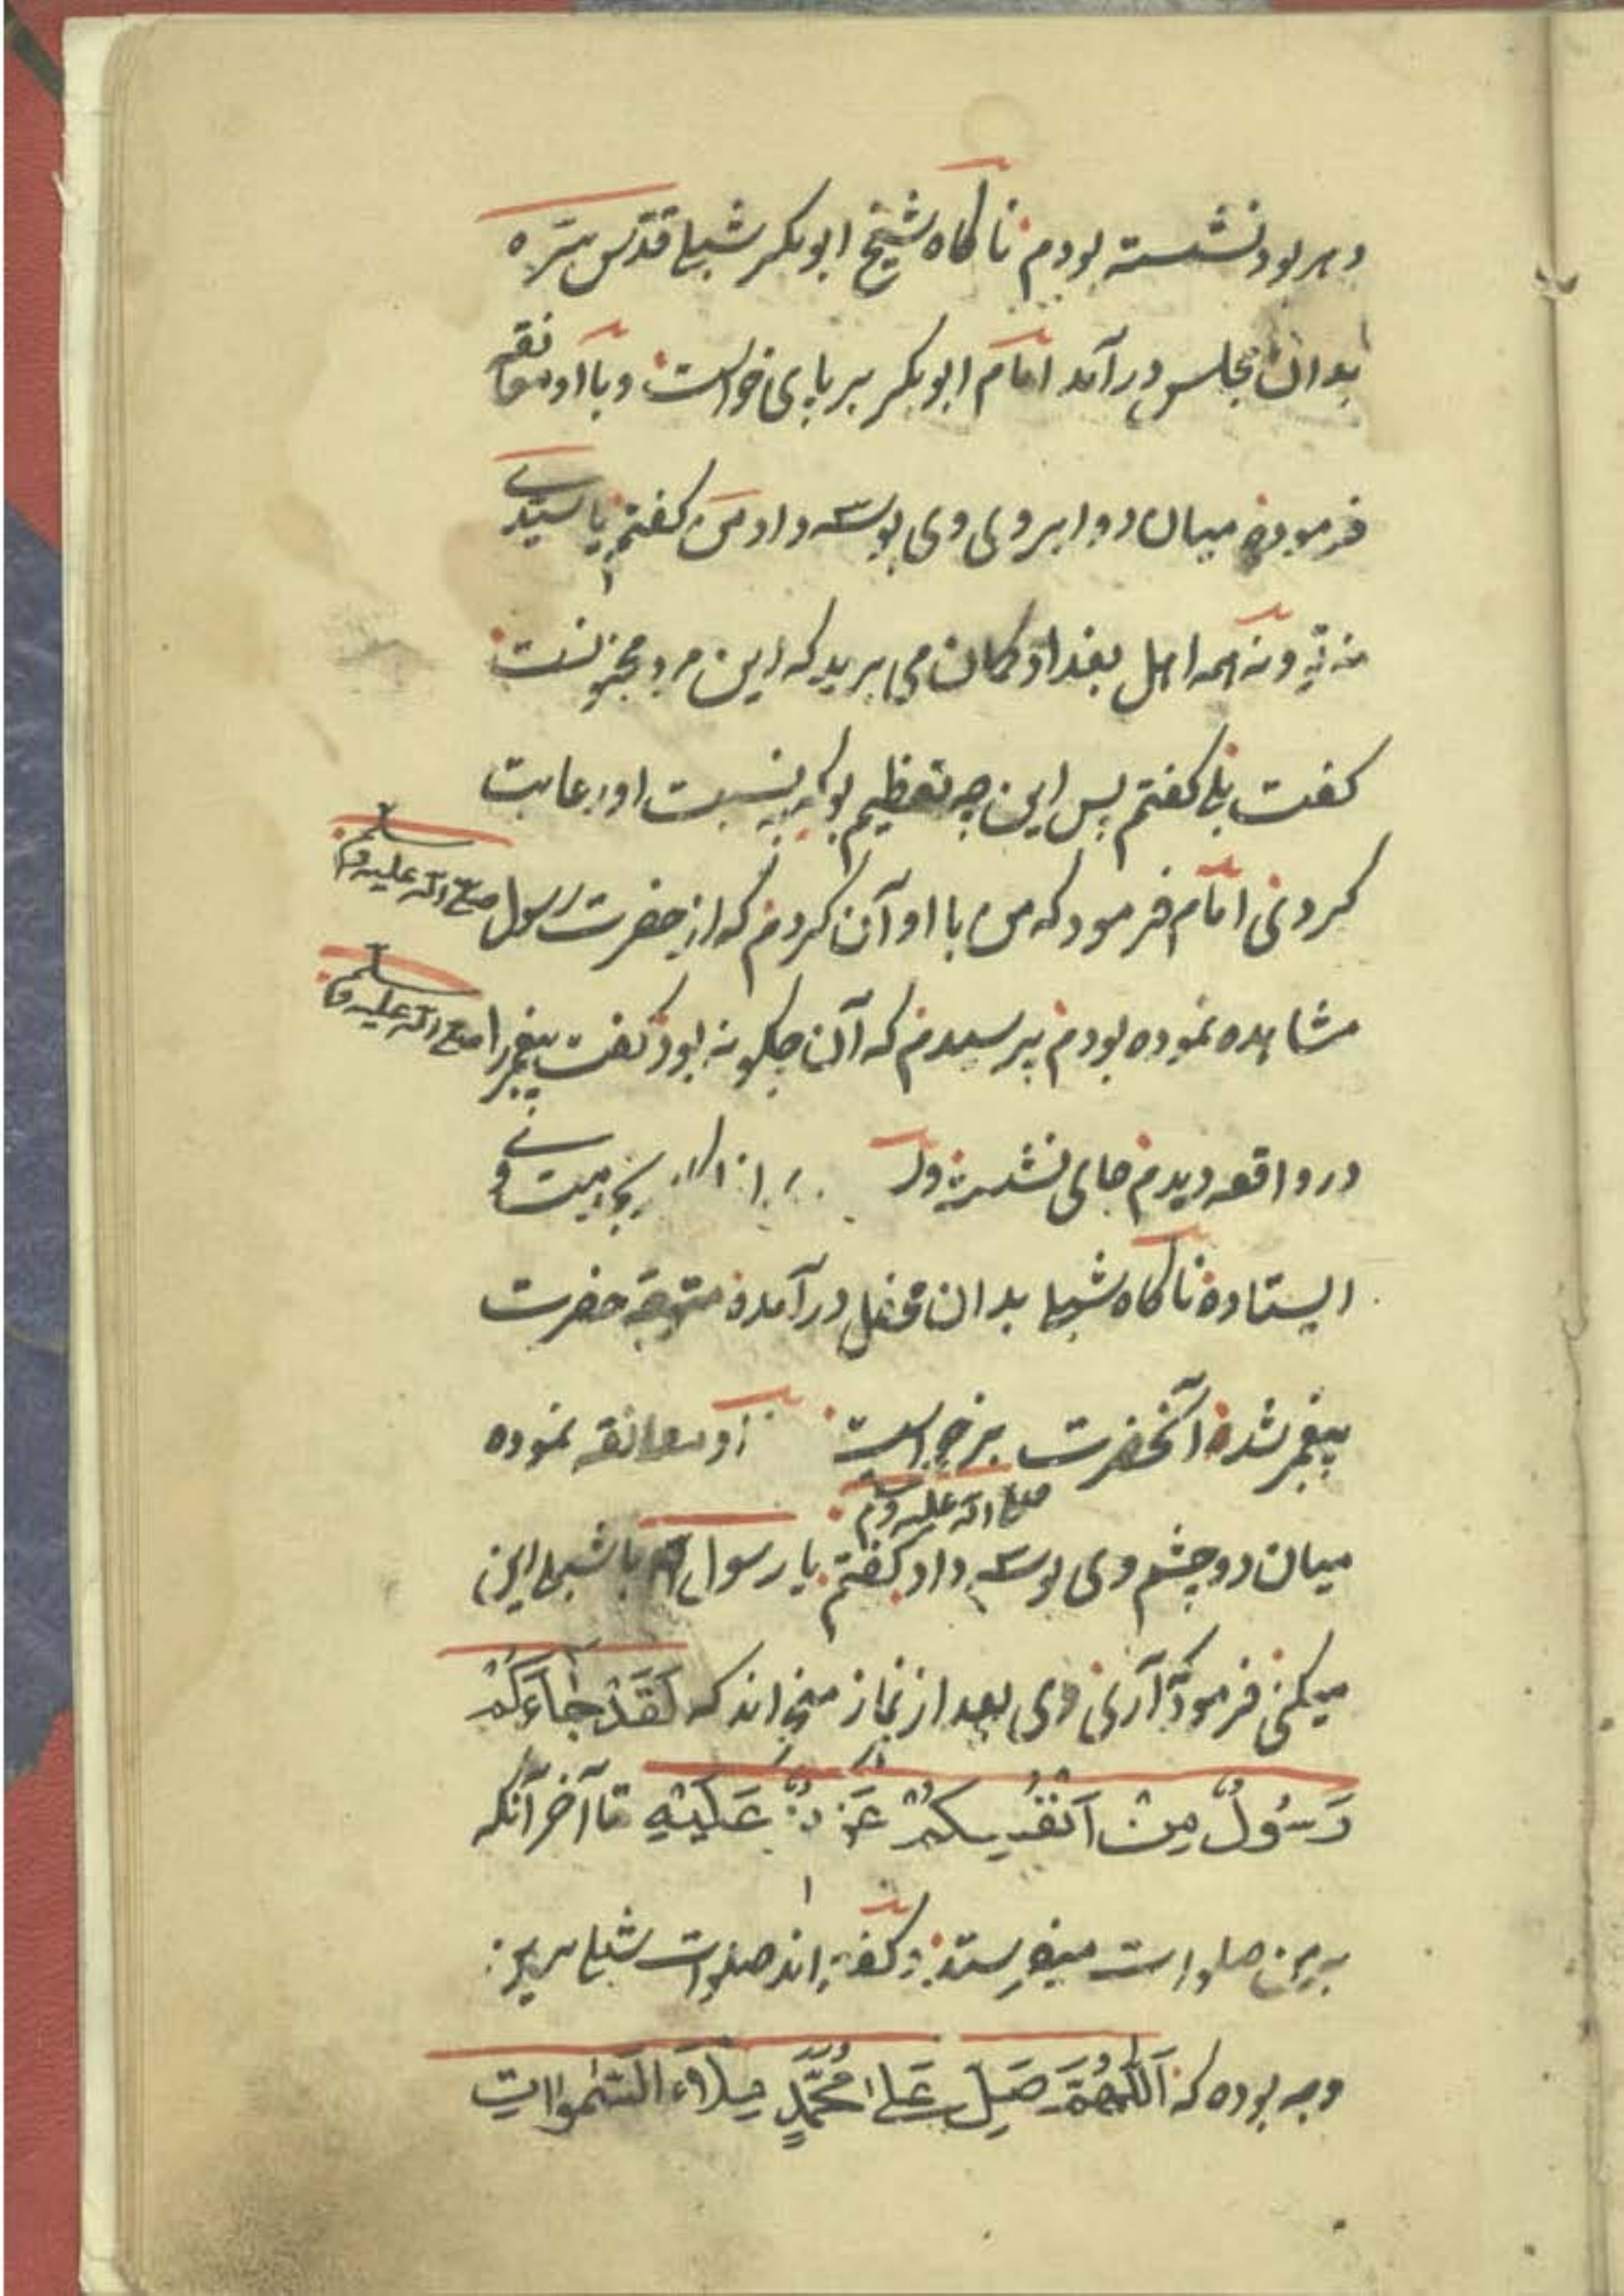 دهر بود نشسته بودم ناکاه شیخ ابوبکر شبلی قدّس سرّه
بدان مجلس درآمد امام ابوبکر بر پای خواست و با او معانقه
فرموده میان دو ابروی وی بوسه داد من کفتم یا سیّدی
نه تو و نه همه اهل بغداد کمان می برید که این مرد مجنونست
کفت بلی کفتم پس این چه تعظیم بود که بنسبت او رعایت
کردی امام فرمود که من با او آن کردم که از حضرت رسول صلی الله علیه وسلم
مشاهده نموده بودم پرسیدم که آن چکونه بود کفت پیغمبر را صلی الله علیه وسلم
در واقعه دیدم جای نشسته و
ایستاده ناکاه شبلی بدان محفل درآمده متوجّه حضرت
پیغمبر شده آنحضرت برخواست او معانقه نموده
صلی الله علیه وسلم
میان دو چشم وی بوسه داد کفتم یا رسول الله با شبلی این
میکنی فرمود آری وی بعد از نماز میخواند که لَقَدْ جَاءَكُمْ
رَسُولٌ مِنْ اَنْفُسِكُمْ عَزِيزٌ عَلَيْهِ تا آخر آنکه
برمن صلوات میفرستد و کفته اند صلوات شبلی برین
وجه بوده که اَللّٰهُمَّ صَلِّ عَلٰى مُحَمَّدٍ مِلَاءَ السَّمٰوَاتِ